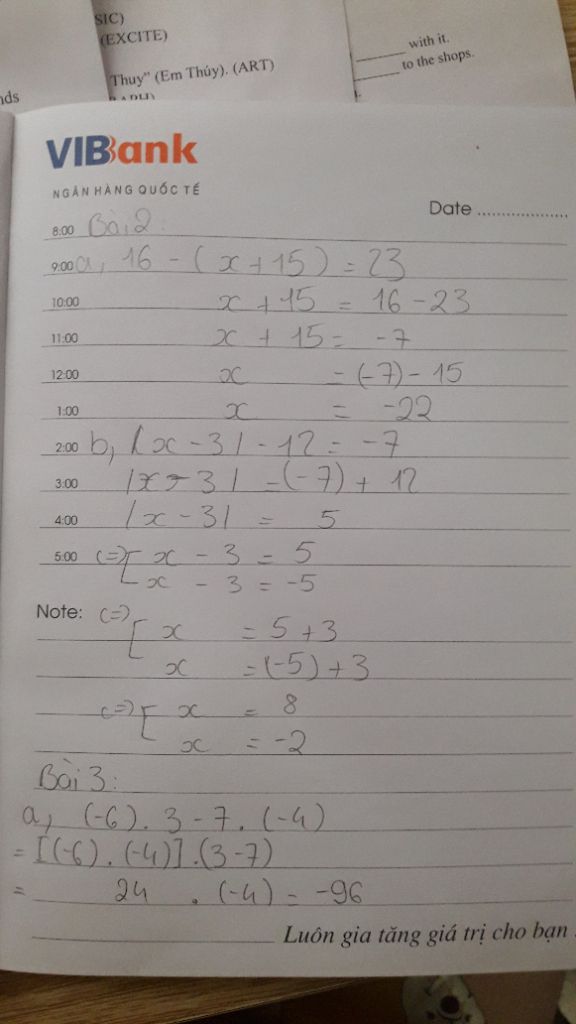 SIC)
(EXCITE)
Thuy" (Em Thúy). (ART)
nds
with it.
to the shops.
VIBBank
NGÂN HÀNG QUỐC TẾ
Date ...................
8:00 Bài 2:
9:00 a, 16 - (x + 15) = 23
10:00 x + 15 = 16 - 23
11:00 x + 15 = -7
12:00 x = (-7) - 15
1:00 x = -22
2:00 b, |x - 3| - 12 = -7
3:00 |x - 3| = (-7) + 12
4:00 |x - 3| = 5
5:00 (=) [ x - 3 = 5
x - 3 = -5
Note: (=) [ x = 5 + 3
x = (-5) + 3
(=) [ x = 8
x = -2
Bài 3:
a, (-6) . 3 - 7 . (-4)
= [(-6) . (-4)] . (3 - 7)
= 24 . (-4) = -96
Luôn gia tăng giá trị cho bạn